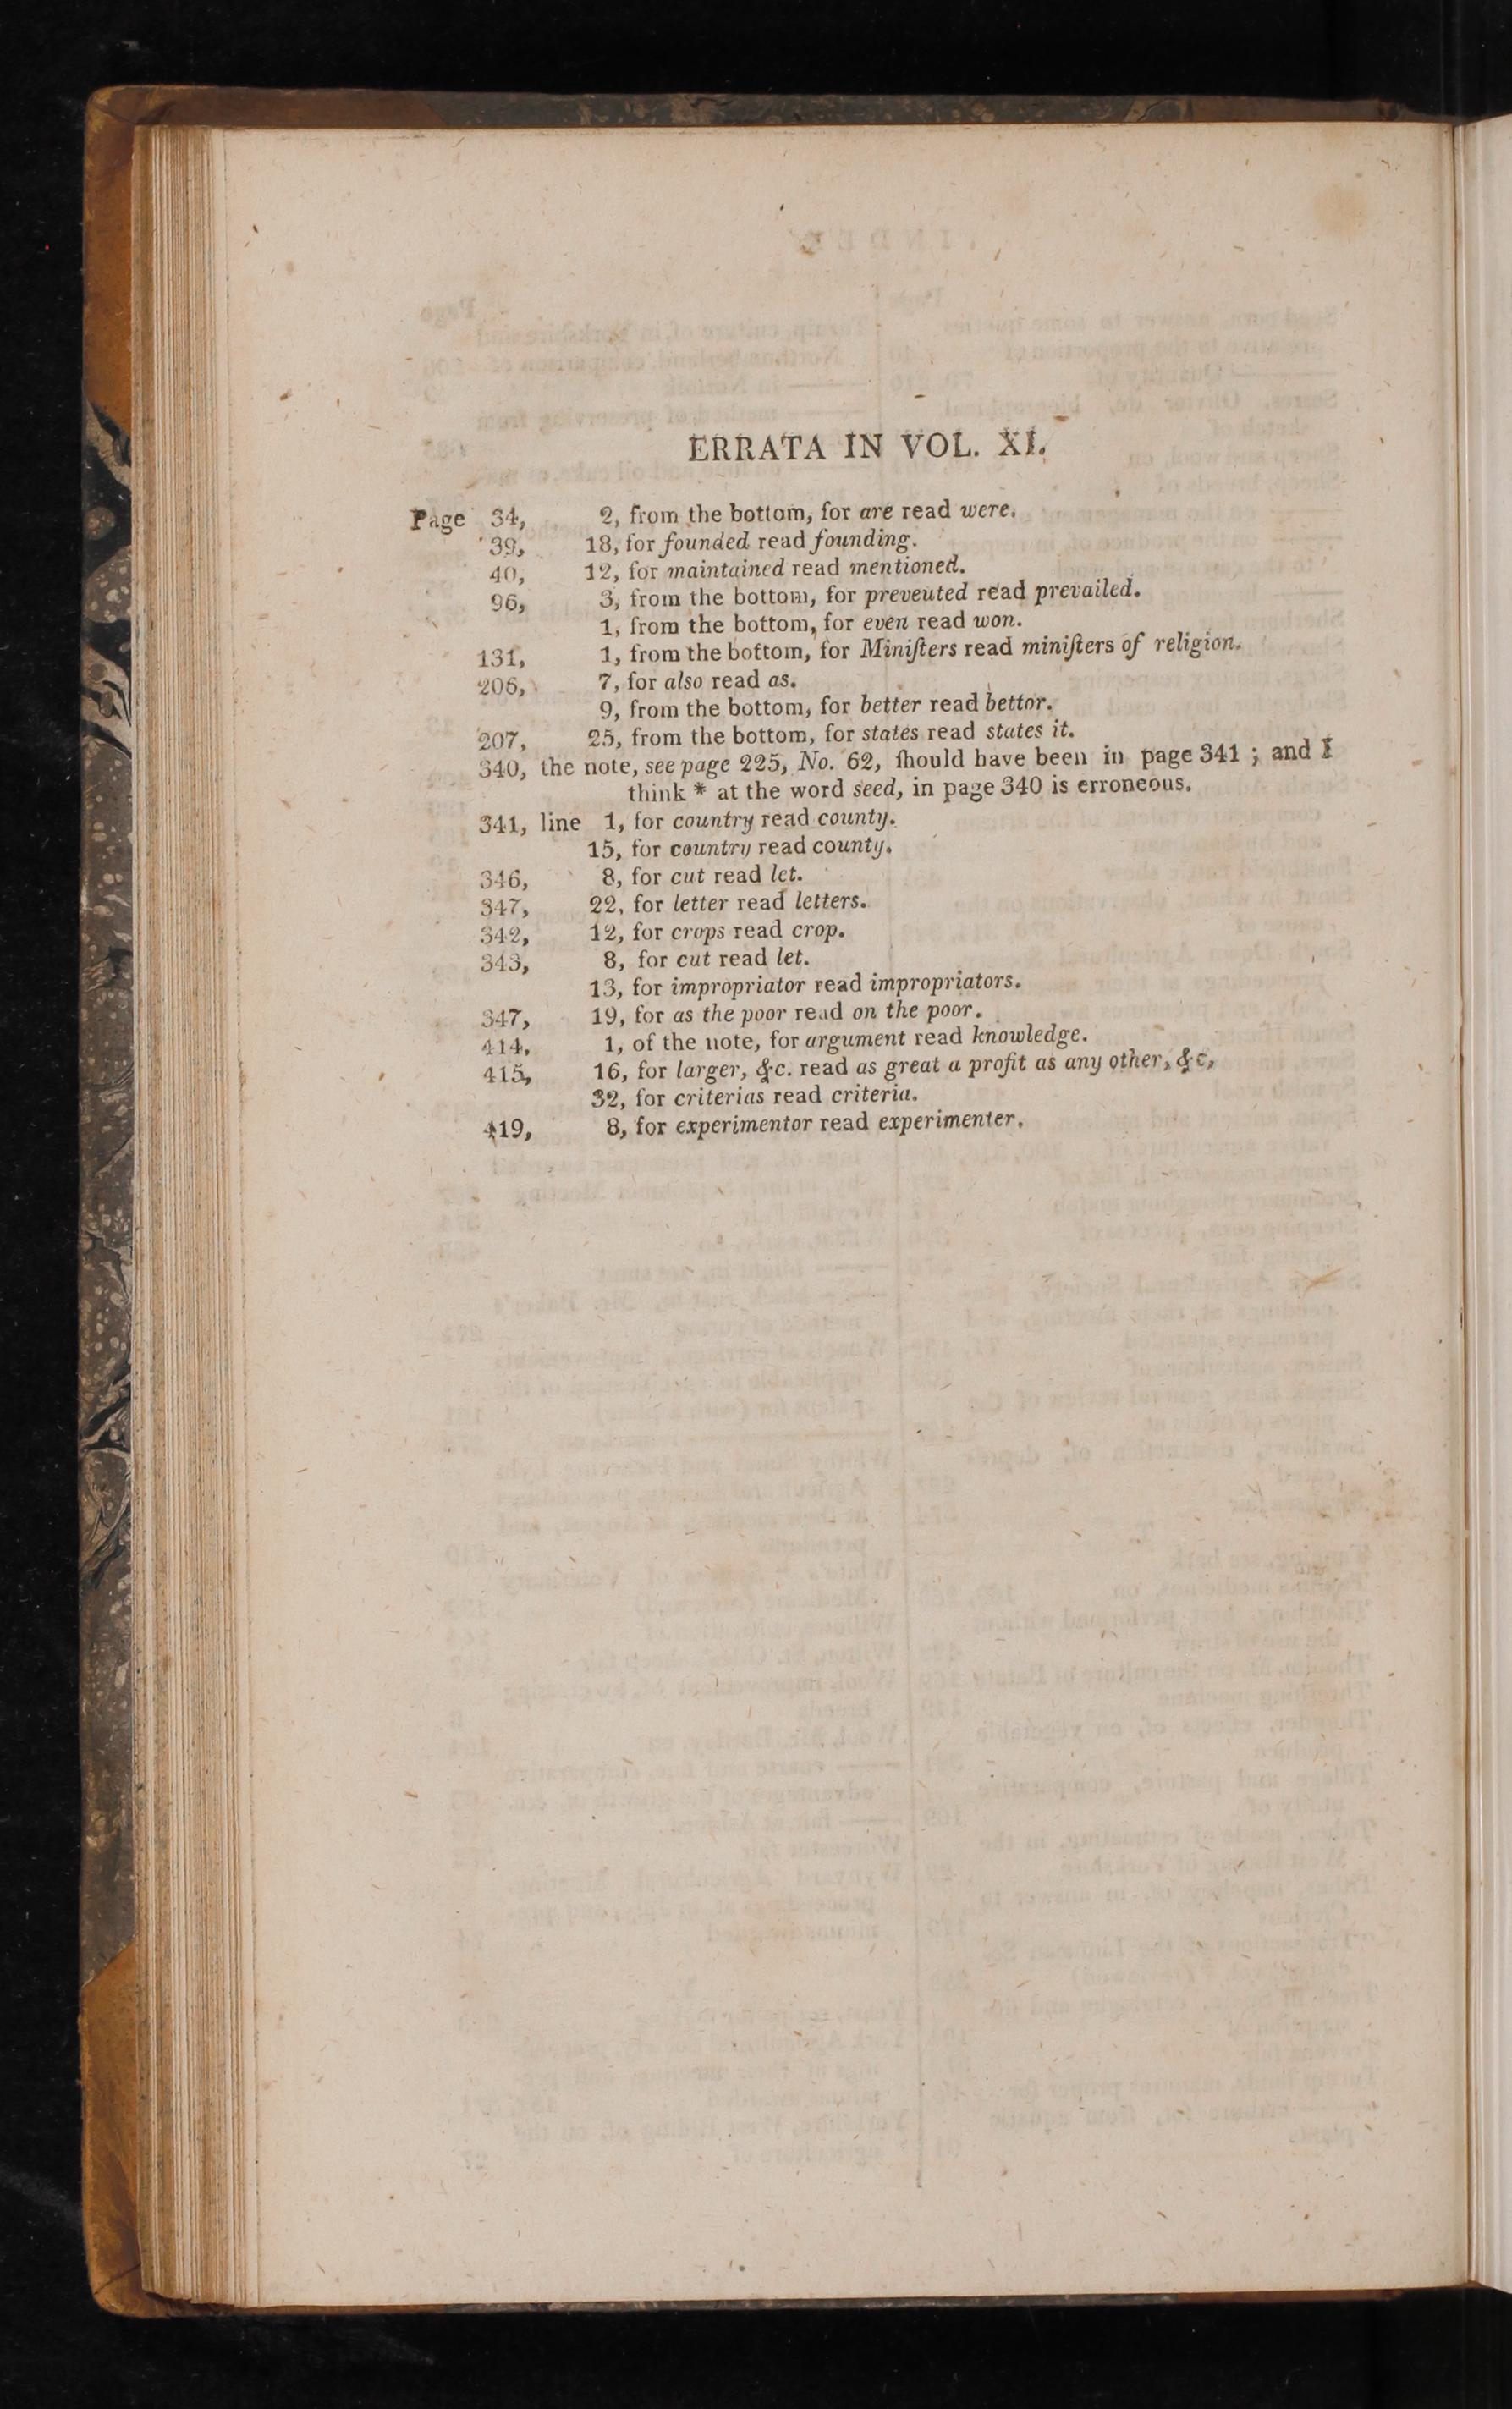 ERRATA IN VOL. XI.
Page 34, 2, from the bottom, for are read were.
39, 18, for founded read founding.
40, 12, for maintained read mentioned.
96, 3, from the bottom, for preveuted read prevailed.
1, from the bottom, for even read won.
131, 1, from the bottom, for Miniſters read miniſters of religion.
206, 7, for also read as.
9, from the bottom, for better read bettor.
207, 25, from the bottom, for states read states it.
340, the note, see page 225, No. 62, ſhould have been in page 341 ; and I
think * at the word seed, in page 340 is erroneous.
341, line 1, for country read county.
15, for country read county.
346, 8, for cut read let.
347, 22, for letter read letters.
342, 12, for crops read crop.
343, 8, for cut read let.
13, for impropriator read impropriators.
347, 19, for as the poor read on the poor.
414, 1, of the note, for argument read knowledge.
415, 16, for larger, &c. read as great a profit as any other, &c,
32, for criterias read criteria.
419, 8, for experimentor read experimenter.